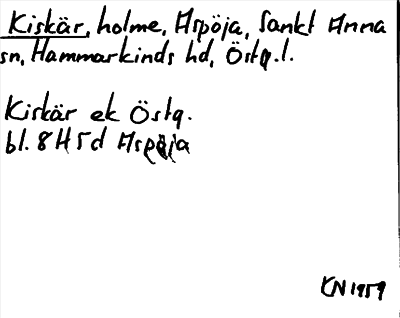 Kiskär, holme, Aspöja, Sankt Anna
sn, Hammarkinds hd, Östg.l.
Kiskär ek Östg.
bl. 8H5d Aspöja
KN 1959